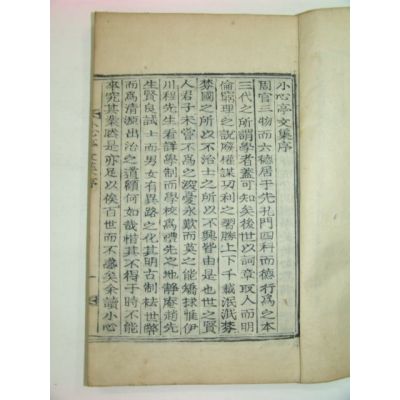 小心亭文集序
周官三物而六德居于先孔門四科而德行爲之本
三代之所謂學者蓋可知矣後世以詞章取人而明
倫窮理之說廢權謀功利之習勝上下千載泯泯棼
棼國之所以不治士之所以不興皆由是也世之賢
人君子未嘗不爲之深憂永歎而莫之能矯捄惟伊
川程先生看詳學制而學校爲禮先之地靜庵趙先
生賢良試士而男女有異路之化其明古制祛世弊
而爲淸源出治之道顧何如哉惜其不得于時不能
卒究其業然是亦足以俟百世而不惑矣余讀小心
小心亭文集序 一